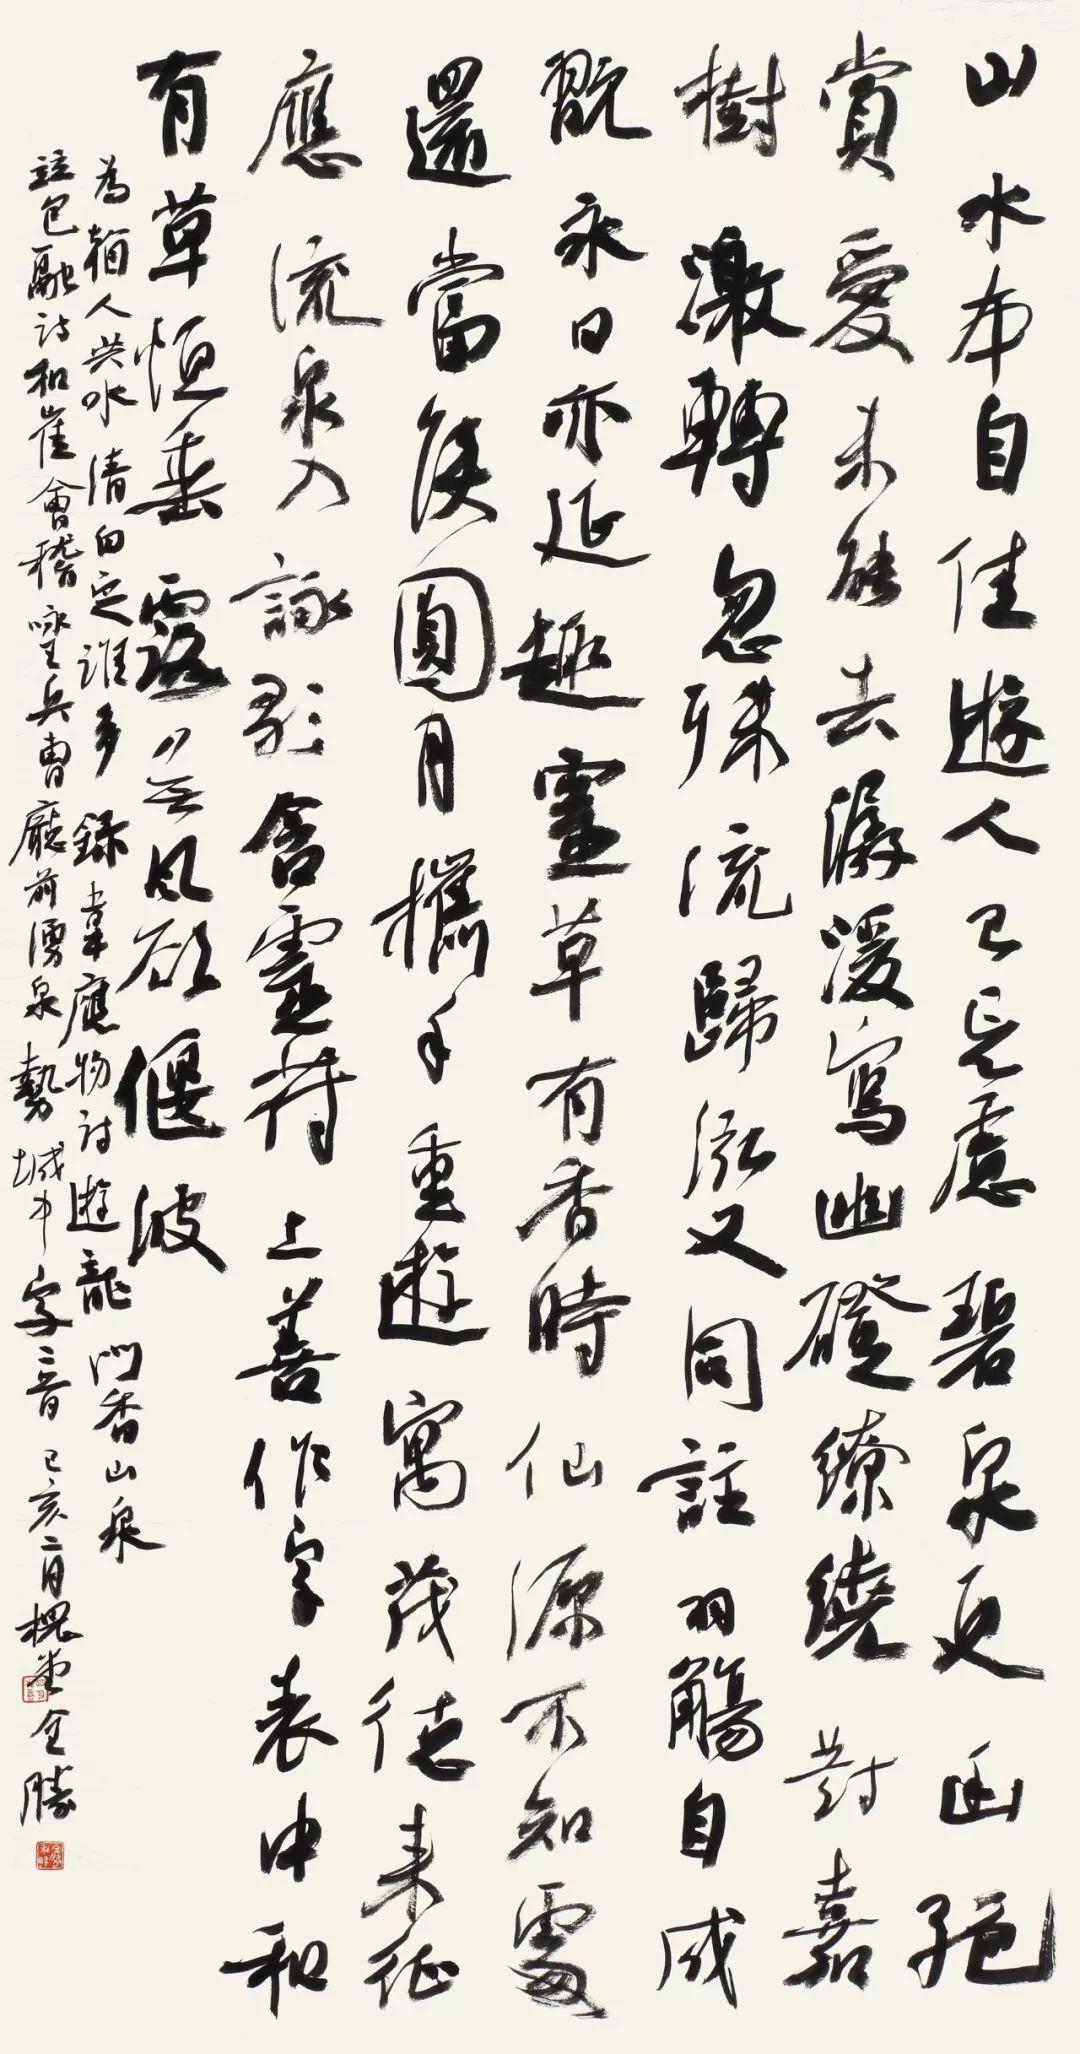 山水本自佳遊人已忘慮碧泉更幽絕
賞愛未能去潺湲寫幽磴繚繞對嘉
樹激轉忽殊流歸泓又同註羽觴自成
翫永日亦延趣靈草有香時仙源不知處
還當候圓月攜手重遊寓茂德來征
應流泉入詠歌含靈符上善作字表中和
有草恒垂露無風欲偃波
為人共水清白定誰多錄韋應物詩遊龍門香山泉
竝包融詩和崔會稽詠王兵曹廳前湧泉勢城中字二首己亥二月槐堂全勝